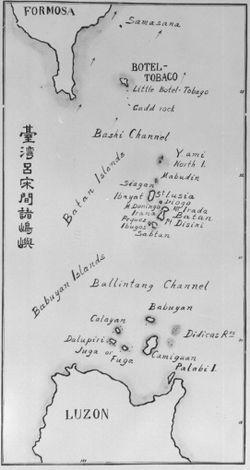 FORMOSA
Samasana
BOTEL-
TOBACO
Little Botel-Tobago
Gadd rock
Bashi Channel
臺灣呂宋間諸嶋嶼
Batan Islands
Y'ami
North I.
Mabudin
Siayan
Ibayat
Sta Lusia
Diogo
M. Domingo
Mt Irada
Irana
Batan
Pt Disini
Ibugos
Sabtan
Babuyan Islands
Ballintang Channel
Babuyan
Calayan
Didicas Rks
Dalupiri
Juga or
Fuga
Camiguan
Palabi I.
LUZON